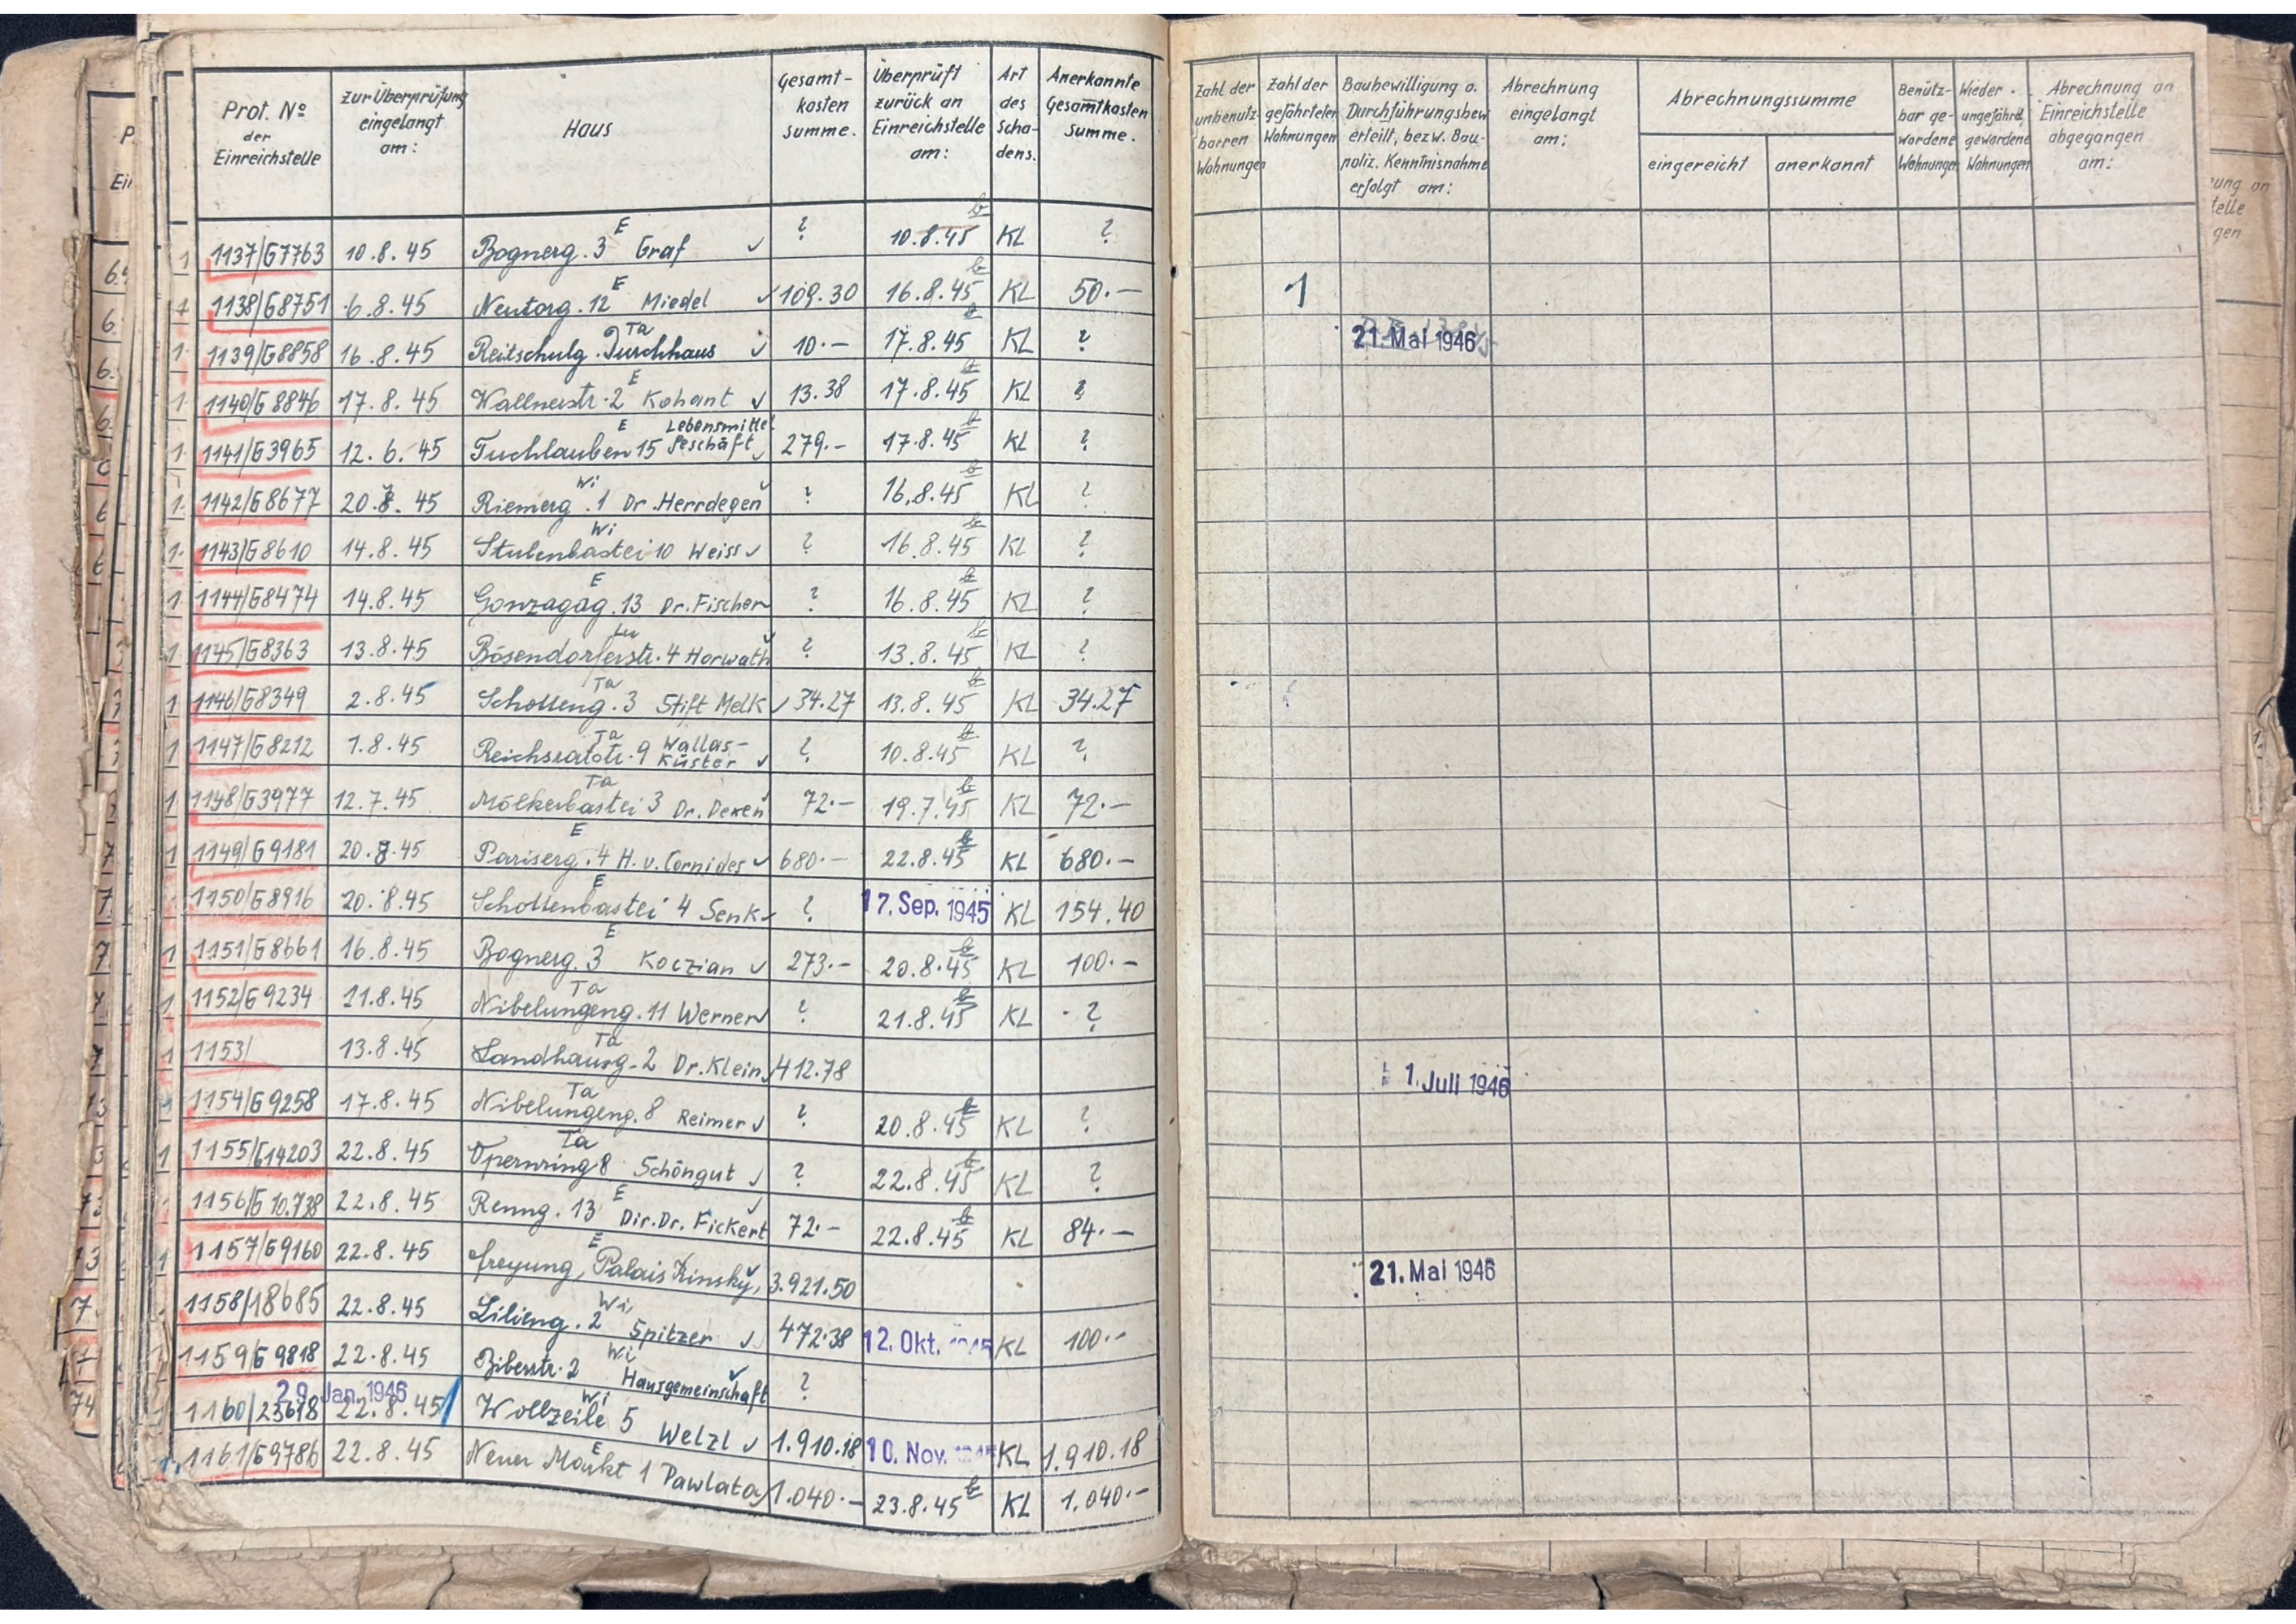 Prot. Nº der Einreichstelle | Zur Überprüfung eingelangt am: | Haus | Gesamt-kosten summe. | Überprüft zurück an Einreichstelle am: | Art des Scha-dens. | Anerkannte Gesamtkosten Summe. | Zahl der unbenutz-barren Wohnungen | Zahl der gefährteten Wohnungen | Baubewilligung o. Durchführungsbew. erteilt, bezw. Bau-poliz. Kenntnisnahme erfolgt am: | Abrechnung eingelangt am: | Abrechnungssumme eingereicht | anerkannt | Benütz-bar ge-wordene Wohnungen | Wieder ungefährd. gewordene Wohnungen | Abrechnung an Einreichstelle abgegangen am:
1137/G7763 10.8.45 Bognerg. 3 E Graf ✓ ? 10.8.45 KL ?
1138/G8751 6.8.45 Neutorg. 12 E Miedel ✓ 109.30 16.8.45 KL 50.— 1
1139/G8858 16.8.45 Reitschulg. Ta Durchhaus ✓ 10.— 17.8.45 KL ? 21. Mai 1946
1140/G8846 17.8.45 Wallnerstr. 2 E Kohant ✓ 13.38 17.8.45 KL ?
1141/G3965 12.6.45 Tuchlauben 15 E Lebensmittel Geschäft ✓ 279.– 17.8.45 KL ?
1142/G8677 20.8.45 Riemerg. 1 Wi Dr. Herrdegen ✓ ? 16.8.45 KL ?
1143/G8610 14.8.45 Stubenbastei 10 Wi Weiss ✓ ? 16.8.45 KL ?
1144/G8474 14.8.45 Gonzagag. 13 E Dr. Fischer ? 16.8.45 KL ?
1145/G8363 13.8.45 Bösendorferstr. 4 Horwath ✓ ? 13.8.45 KL ?
1146/G8349 2.8.45 Schotteng. 3 Ta Stift Melk ✓ 34.27 13.8.45 KL 34.27
1147/G8212 1.8.45 Reichsratstr. 9 Ta Wallas-Küster ✓ ? 10.8.45 KL ?
1148/G3977 12.7.45 Mölkerbastei 3 Ta Dr. Dexen ✓ 72.— 19.7.45 KL 72.—
1149/G9181 20.8.45 Pariserg. 4 E H. v. Cornides ✓ 680.— 22.8.45 KL 680.—
1150/G8916 20.8.45 Schottenbastei 4 E Senk ✓ ? 17. Sep. 1945 KL 154.40
1151/G8661 16.8.45 Bognerg. 3 E Koczian ✓ 273.— 20.8.45 KL 100.—
1152/G9234 21.8.45 Nibelungeng. 11 Ta Werner ✓ ? 21.8.45 KL ?
1153/ 13.8.45 Landhausg. 2 Ta Dr. Klein ✓ 412.78 1. Juli 1946
1154/G9258 17.8.45 Nibelungeng. 8 Ta Reimer ✓ ? 20.8.45 KL ?
1155/G14203 22.8.45 Opernring 8 Ta Schöngut ✓ ? 22.8.45 KL ?
1156/G10.738 22.8.45 Renng. 13 E Dir. Dr. Fickert ✓ 72.— 22.8.45 KL 84.—
1157/G9160 22.8.45 Freyung, E Palais Kinsky, ✓ 3.921.50 21. Mai 1946
1158/18685 22.8.45 Lilieng. 2 Wi Spitzer ✓ 472.38 12. Okt. 1945 KL 100.—
1159/G9818 22.8.45 Biberstr. 2 Wi Hausgemeinschaft ✓ ?
29. Jan. 1946
1160/23618 22.8.45 Wollzeile 5 Wi Welzl ✓ 1.910.18 10. Nov. 1945 KL 1.910.18
1161/G9786 22.8.45 Neuer Markt 1 E Pawlata 1.040.— 23.8.45 KL 1.040.—